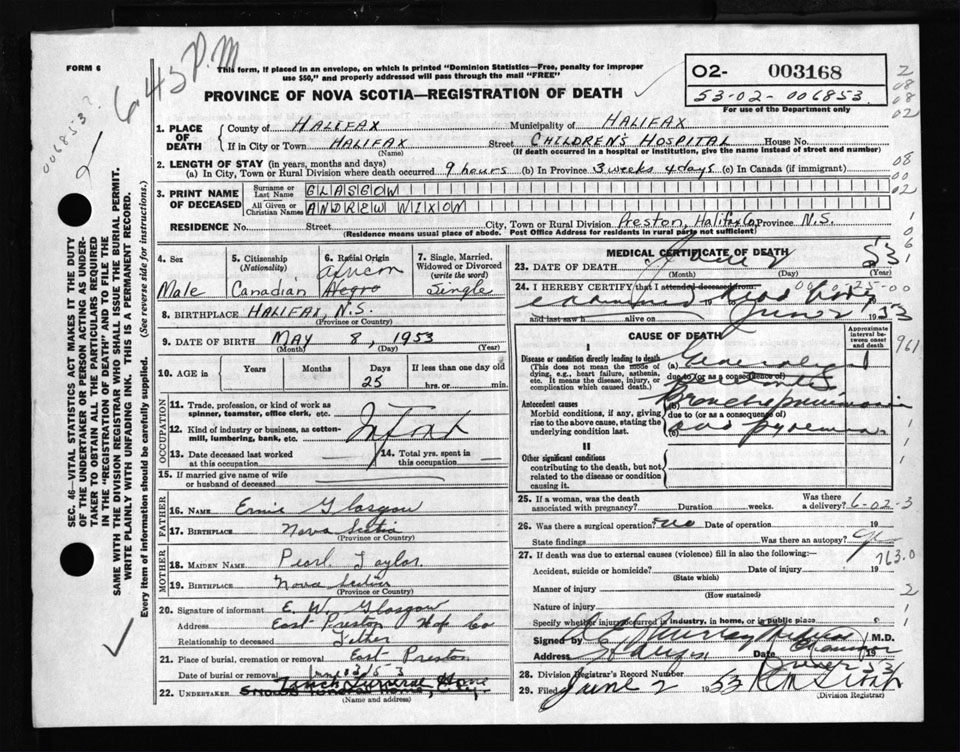 FORM 6
6.45 P.M
This form, if placed in an envelope, on which is printed "Dominion Statistics—Free, penalty for improper
use $50," and properly addressed will pass through the mail "FREE"
PROVINCE OF NOVA SCOTIA—REGISTRATION OF DEATH
02- 003168
53-02-006853
For use of the Department only
006853
SEC. 46—VITAL STATISTICS ACT MAKES IT THE DUTY
OF THE UNDERTAKER OR PERSON ACTING AS UNDER-
TAKER TO OBTAIN ALL THE PARTICULARS REQUIRED
IN THE "REGISTRATION OF DEATH" AND TO FILE THE
SAME WITH THE DIVISION REGISTRAR WHO SHALL ISSUE THE BURIAL PERMIT.
WRITE PLAINLY WITH UNFADING INK. THIS IS A PERMANENT RECORD.
Every item of information should be carefully supplied. (See reverse side for instructions.)
1. PLACE OF DEATH County of HALIFAX Municipality of HALIFAX
If in City or Town HALIFAX (Name) Street CHILDREN'S HOSPITAL House No.
(If death occurred in a hospital or institution, give the name instead of street and number)
2. LENGTH OF STAY (in years, months and days)
(a) In City, Town or Rural Division where death occurred 9 hours (b) In Province 3 weeks 4 days (c) In Canada (if immigrant)
3. PRINT NAME OF DECEASED Surname or Last Name GLASGOW
All Given or Christian Names ANDREW WIXOM
RESIDENCE No. Street City, Town or Rural Division Preston, Halifax Co. Province N.S.
(Residence means usual place of abode. Post Office Address for residents in rural parts not sufficient)
4. Sex Male
5. Citizenship (Nationality) Canadian
6. Racial Origin African Negro
7. Single, Married, Widowed or Divorced (write the word) Single
8. BIRTHPLACE HALIFAX, N.S.
(Province or Country)
9. DATE OF BIRTH MAY 8, 1953
(Month) (Day) (Year)
10. AGE in Years Months Days 25 If less than one day old hrs. or min.
OCCUPATION
11. Trade, profession, or kind of work as spinner, teamster, office clerk, etc.
12. Kind of industry or business, as cotton-mill, lumbering, bank, etc. Infant
13. Date deceased last worked at this occupation
14. Total yrs. spent in this occupation
15. If married give name of wife or husband of deceased
FATHER
16. Name Ernie Glasgow
17. Birthplace Nova Scotia
(Province or Country)
MOTHER
18. MAIDEN NAME Pearl Taylor
19. BIRTHPLACE Nova Scotia
(Province or Country)
20. Signature of informant E. W. Glasgow
Address East Preston Hfx Co
Relationship to deceased Father
21. Place of burial, cremation or removal East Preston
Date of burial or removal June 3/53
22. UNDERTAKER Funeral Home
(Name and address)
MEDICAL CERTIFICATE OF DEATH
23. DATE OF DEATH June 2 53
(Month) (Day) (Year)
24. I HEREBY CERTIFY that I attended deceased from:
examined dead body
and last saw h alive on June 2 1953
CAUSE OF DEATH
Approximate interval between onset and death
I
Disease or condition directly leading to death
(This does not mean the mode of dying, e.g., heart failure, asthenia, etc. It means the disease, injury, or complication which caused death.)
(a) General
due to (or as a consequence of)
Antecedent causes
Morbid conditions, if any, giving rise to the above cause, stating the underlying condition last.
(b) Bronchopneumonia
due to (or as a consequence of)
(c) and pyaemia
II
Other significant conditions
contributing to the death, but not related to the disease or condition causing it.
25. If a woman, was the death associated with pregnancy? Duration weeks. Was there a delivery? 6-02-3
26. Was there a surgical operation? no Date of operation 19
State findings Was there an autopsy?
763.0
27. If death was due to external causes (violence) fill in also the following:—
Accident, suicide or homicide? (State which) Date of injury 19
Manner of injury (How sustained)
Nature of injury
Specify whether injury occurred in industry, in home, or in public place
Signed by Murray M.D.
Address Halifax Date 19
28. Division Registrar's Record Number
29. Filed June 2 1953
(Division Registrar)